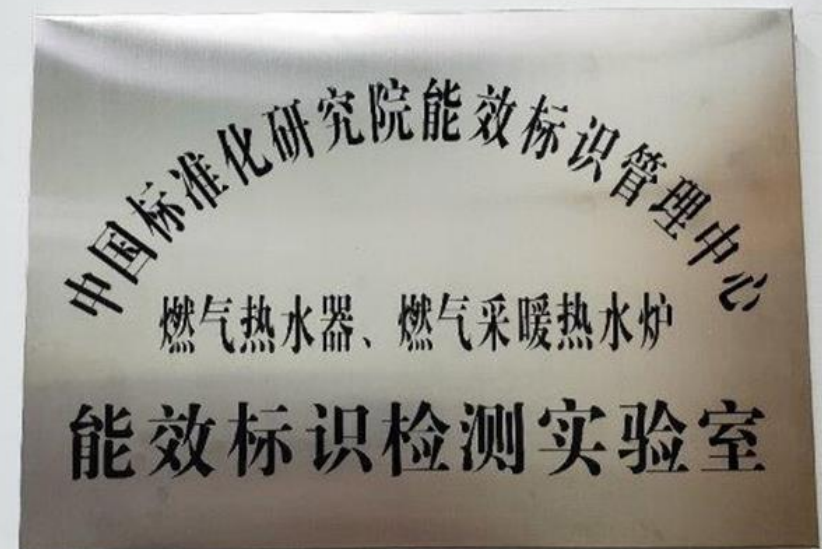 中国标准化研究院能效标识管理中心
燃气热水器、燃气采暖热水炉
能效标识检测实验室